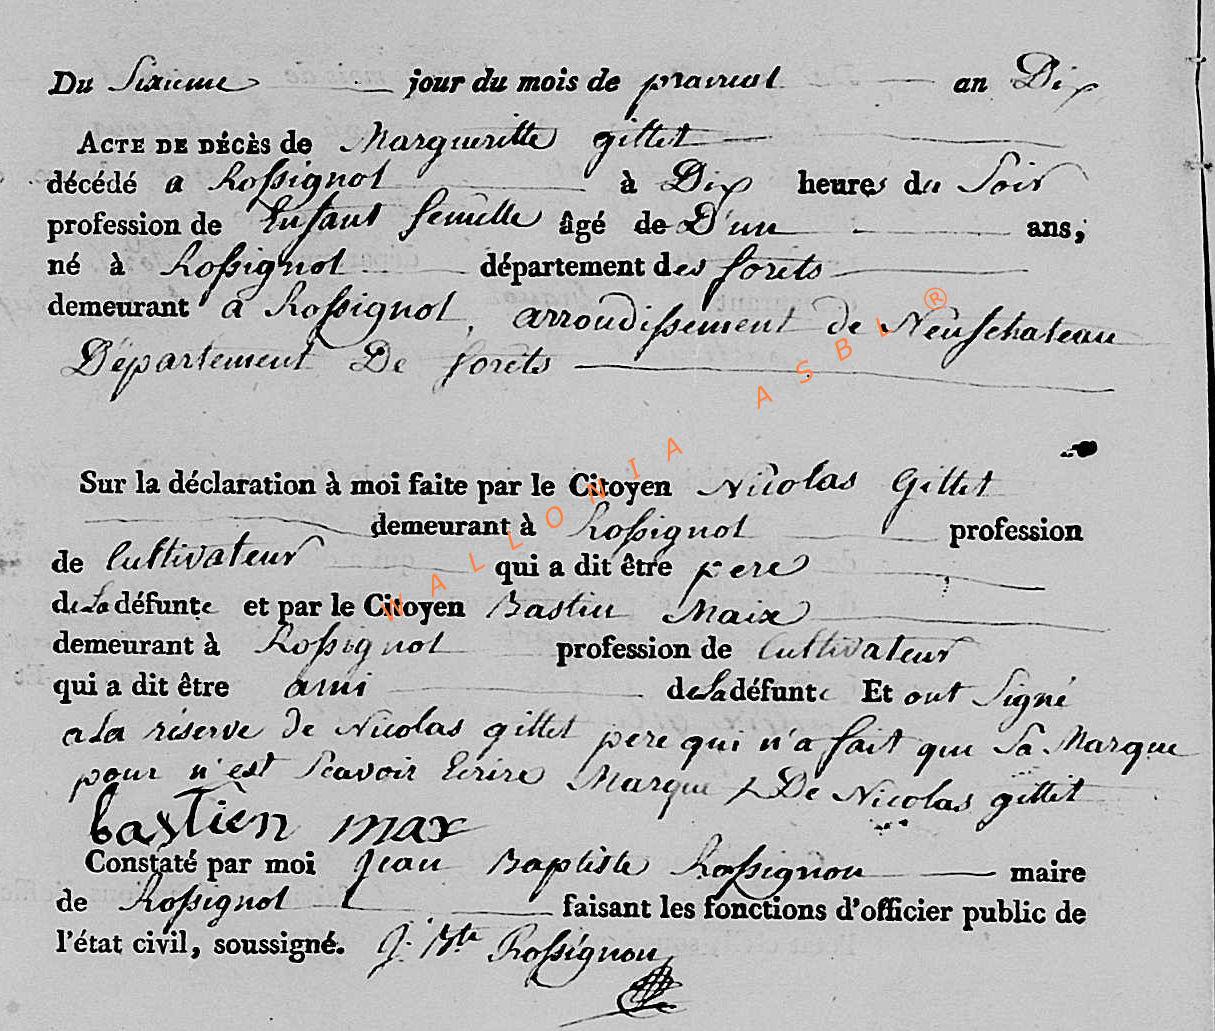 Du Sixieme jour du mois de prairial an Dix
ACTE DE DÉCÈS de Margueritte gillet
décédé a Rossignol à Dix heures du Soir
profession de Enfant femelle âgé de D'un ans;
né à Rossignol département des forets
demeurant a Rossignol, arrondissement de Neufchateau
Département De forêts
Sur la déclaration à moi faite par le Citoyen Nicolas Gillet
demeurant à Rossignol profession
de Cultivateur qui a dit être pere
de La défunte et par le Citoyen Bastin Maix
demeurant à Rossignol profession de Cultivateur
qui a dit être ami de La défunte Et ont Signé
a La réserve de Nicolas gillet pere qui n'a fait que Sa Marque
pour n'est Scavoir Ecrire Marque De Nicolas gillet
bastièn max
Constaté par moi Jean Baptiste Rossignon maire
de Rossignol faisant les fonctions d'officier public de
l'état civil, soussigné. J. Bte Rossignon
WALLONIA ASBL ®